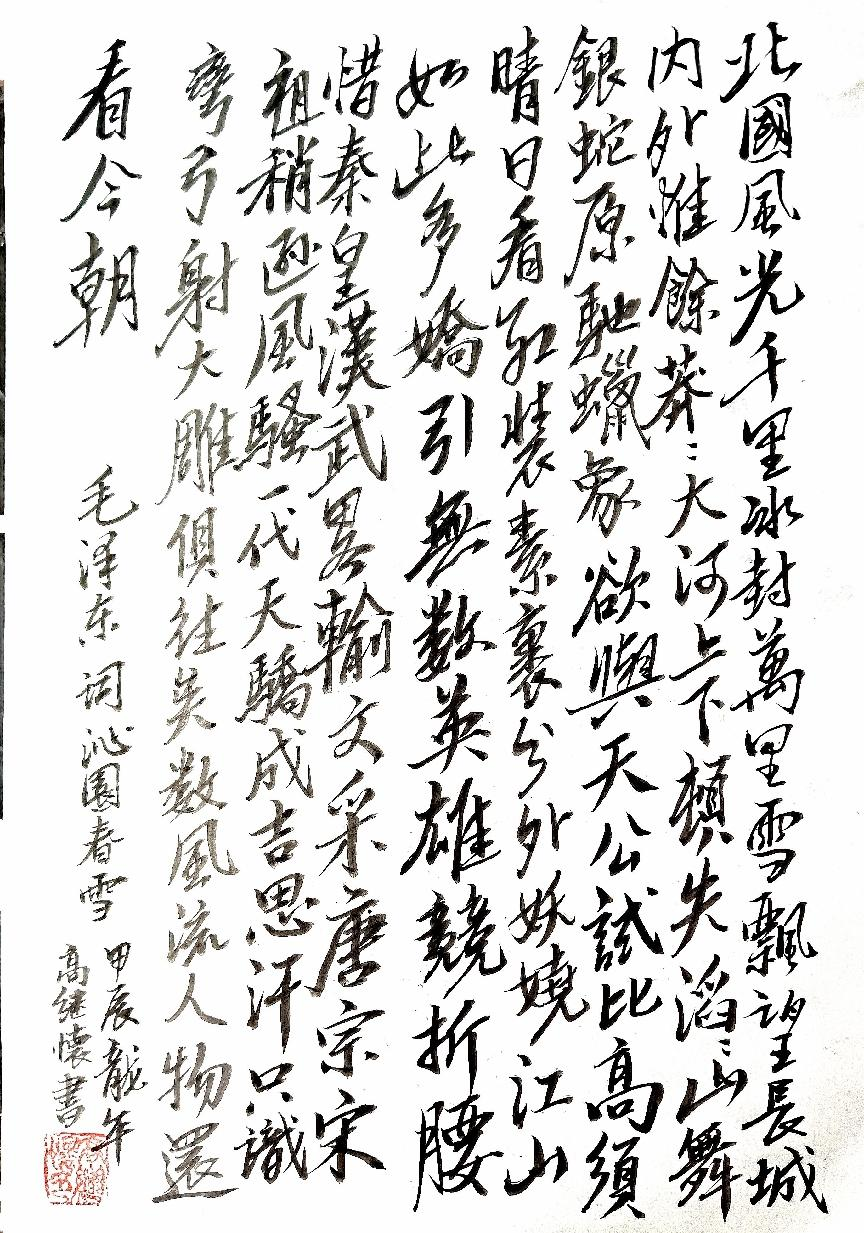 北國風光千里冰封萬里雪飄望長城
内外惟餘莽〻大河上下頓失滔〻山舞
銀蛇原馳蠟象欲與天公試比高須
晴日看红装素裹分外妖嬈江山
如此多嬌引無数英雄競折腰
惜秦皇漢武畧輸文采唐宗宋
祖稍遜風騷一代天驕成吉思汗只識
彎弓射大雕俱往矣数風流人物還
看今朝
毛泽东词沁園春雪
甲辰龍年
高继懷書